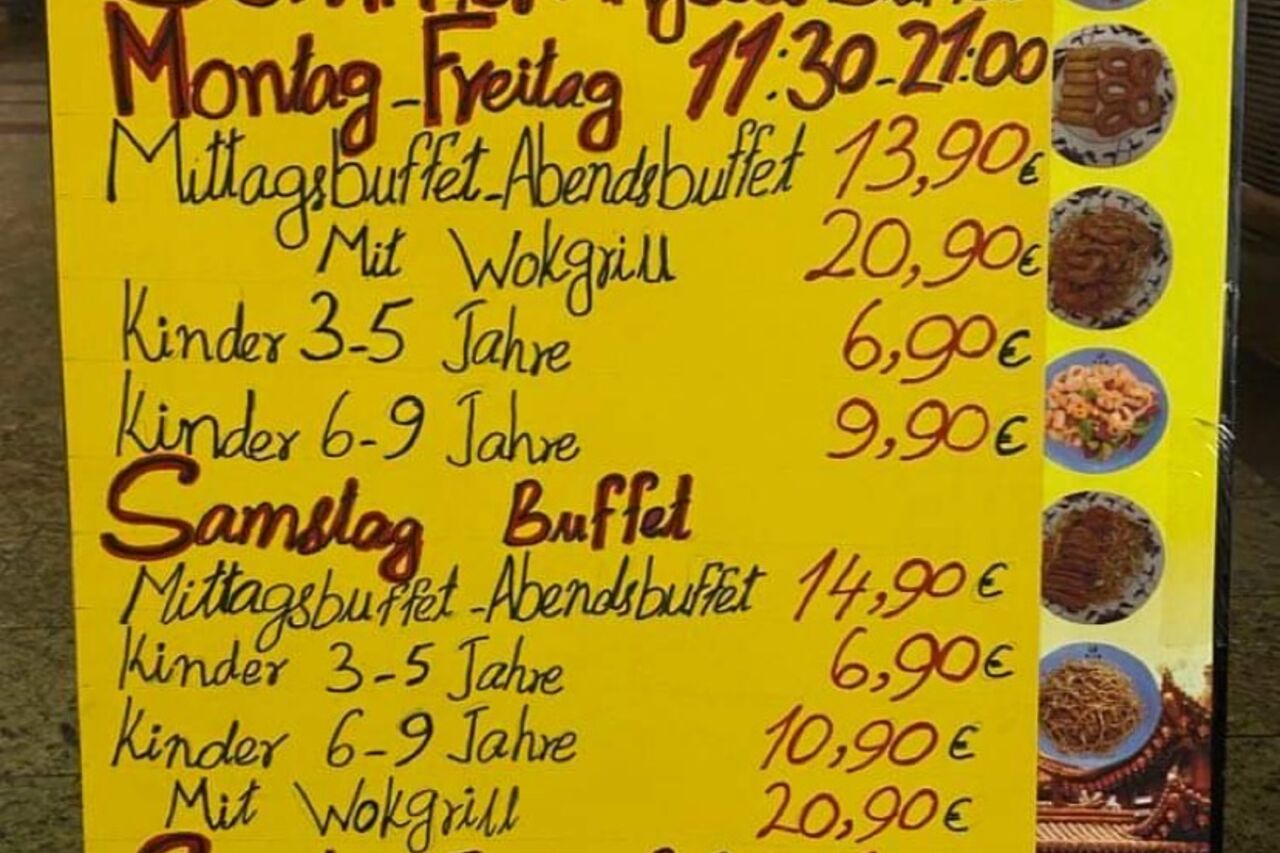 Montag-Freitag 11:30-21:00
Mittagsbuffet-Abendsbuffet 13,90€
Mit Wokgrill 20,90€
Kinder 3-5 Jahre 6,90€
Kinder 6-9 Jahre 9,90€
Samstag Buffet
Mittagsbuffet-Abendsbuffet 14,90€
Kinder 3-5 Jahre 6,90€
Kinder 6-9 Jahre 10,90€
Mit Wokgrill 20,90€